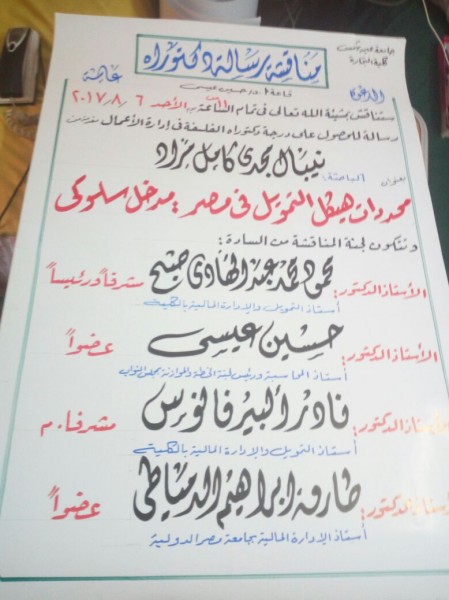 جامعة عين شمس
كلية التجارة
مناقشة رسالة دكتوراه
عامة
الدعوة
قاعة أ.د. حسين عيسى
ستناقش بمشيئة الله تعالى فى تمام الساعة الأحد ٢٠١٧/٨/٦
رسالة للحصول على درجة دكتوراه الفلسفة فى إدارة الأعمال
الباحثة: نيبال مجدى كامل مراد
بعنوان
محددات هيكل التمويل فى مصر: مدخل سلوكى
وتتكون لجنة المناقشة من السادة:
الأستاذ الدكتور: محمود محمد عبد الهادى صبح مشرفاً ورئيساً
أستاذ التمويل والإدارة المالية بالكلية
الأستاذ الدكتور: حسين عيسى عضواً
أستاذ المحاسبة ورئيس لجنة الخطة والموازنة بمجلس النواب
الأستاذ الدكتور: نادر ألبير فانوس مشرفا. م
أستاذ التمويل والإدارة المالية بالكلية
الأستاذ الدكتور: طارق ابراهيم الدمياطى عضواً
أستاذ الإدارة المالية بجامعة مصر الدولية